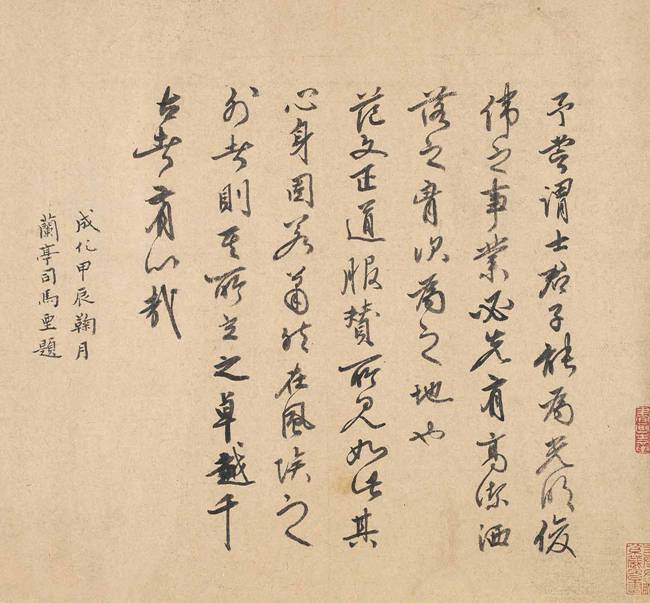 予嘗謂士君子能為光明俊
偉之事業必先有高潔洒
落之胷次為之地也
范文正道服贊所見如此其
心身固若蕭然在風埃之
外者則其所立之卓越千
古者有以哉
成化甲辰鞠月
蘭亭司馬垔題